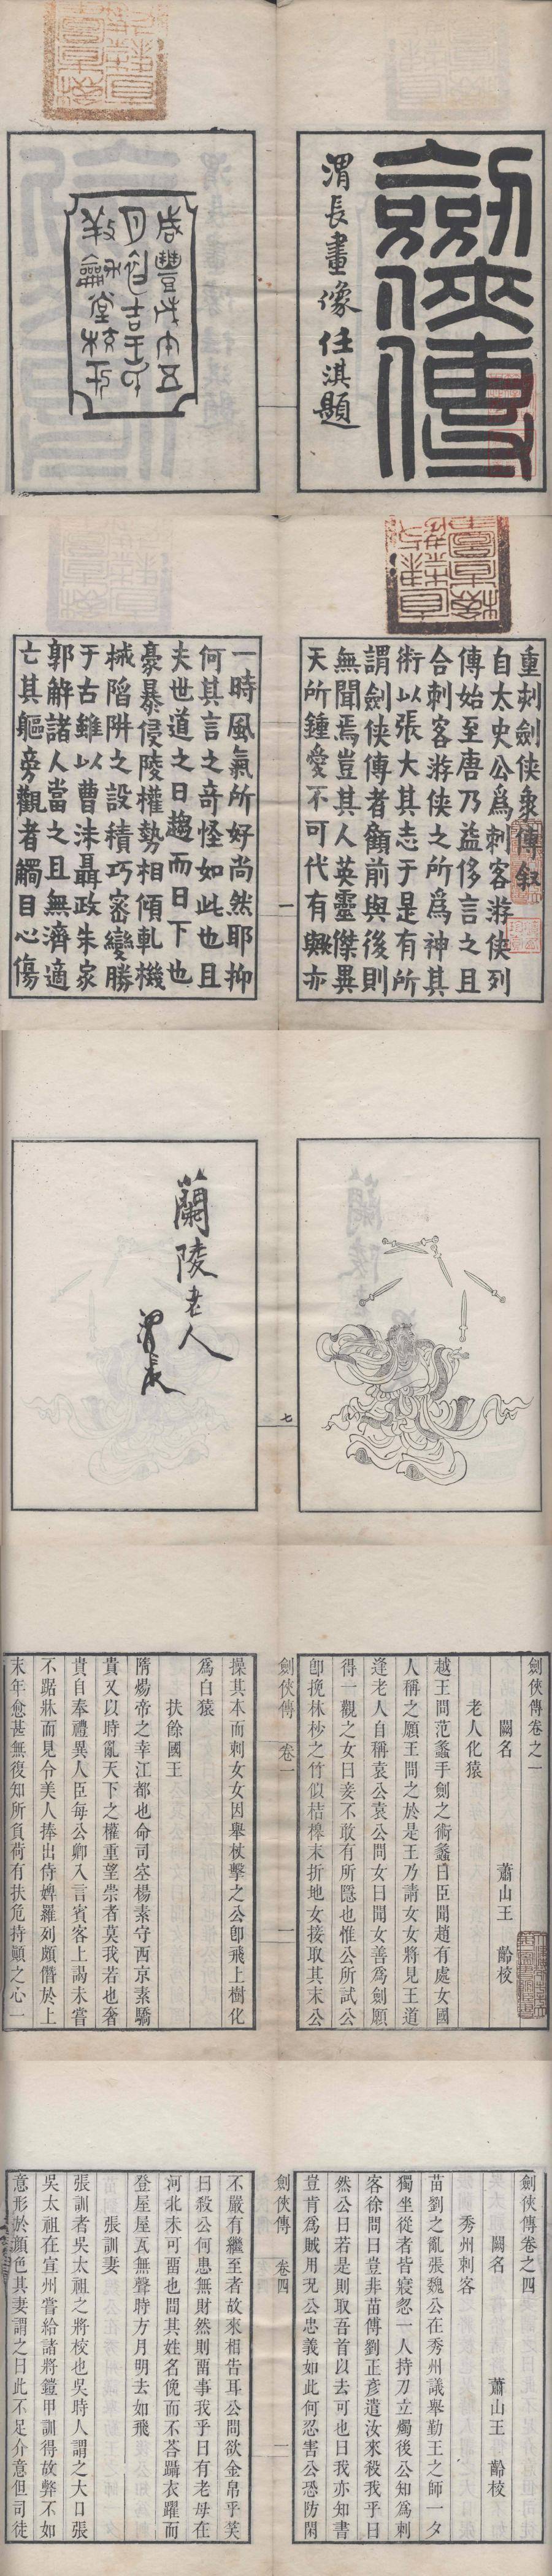 劍俠傳
渭長畫像任淇題
咸豐戊午五
月
養龢堂校刊
重刻劍俠象傳叙
自太史公爲刺客游俠列
傳始至唐乃益侈言之且
合刺客游俠之所爲神其
術以張大其志于是有所
謂劍俠傳者顧前與後則
無聞焉豈其人英靈傑異
天所鍾愛不可代有與亦
一時風氣所好尚然耶抑
何其言之奇怪如此也且
夫世道之日趨而日下也
豪暴侵陵權勢相傾軋機
械陷阱之設積巧密變勝
于古雖以曹沫聶政朱家
郭解諸人當之且無濟適
亡其軀旁觀者觸目心傷
一
七
蘭陵老人
渭長
劍俠傳卷之一
闕名 蕭山王 齡校
老人化猿
越王問范蠡手劍之術蠡曰臣聞趙有處女國
人稱之願王問之於是王乃請女女將見王道
逢老人自稱袁公袁公問女曰聞女善爲劍願
得一觀之女曰妾不敢有所隱也惟公所試公
卽挽林杪之竹似桔橰末折地女接取其末公
劍俠傳 卷一 一
操其本而刺女女因舉杖擊之公卽飛上樹化
爲白猿
扶餘國王
隋煬帝之幸江都也命司空楊素守西京素驕
貴又以時亂天下之權重望崇者莫我若也奢
貴自奉禮異人臣每公卿入言賓客上謁未嘗
不踞牀而見令美人捧出侍婢羅列頗僭於上
末年愈甚無復知所負荷有扶危持顚之心一
劍俠傳卷之四
闕名 蕭山王 齡校
秀州刺客
苗劉之亂張魏公在秀州議舉勤王之師一夕
獨坐從者皆寢忽一人持刀立燭後公知爲刺
客徐問曰豈非苗傅劉正彥遣汝來殺我乎曰
然公曰若是則取吾首以去可也曰我亦知書
豈肯爲賊用況公忠義如此何忍害公恐防閑
劍俠傳 卷四 一
不嚴有繼至者故來相告耳公問欲金帛乎笑
曰殺公何患無財然則留事我乎曰有老母在
河北未可留也問其姓名俛而不荅躡衣躍而
登屋屋瓦無聲時方月明去如飛
張訓妻
張訓者吳太祖之將校也吳時人謂之大口張
吳太祖在宣州嘗給諸將鎧甲訓得故弊不如
意形於顏色其妻謂之曰此不足介意但司徒